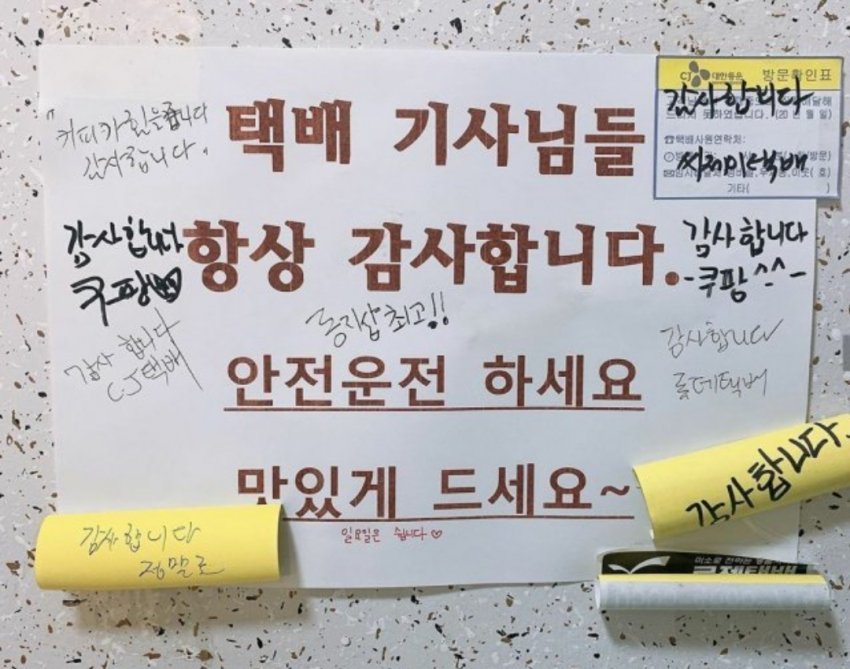 택배 기사님들
항상 감사합니다.
안전운전 하세요
맛있게 드세요~
일요일은 쉽니다♡
감사합니다.
감사합니다
쿠팡
감사 합니다
CJ택배
동지삽최고!!
CJ 대한통운 방문확인표
감사합니다
씨제이택배
☎택배사원연락처:
기타( )
감사합니다
-쿠팡^^-
감사합니다
롯데택배
감사합니다.
감사합니다
정말로